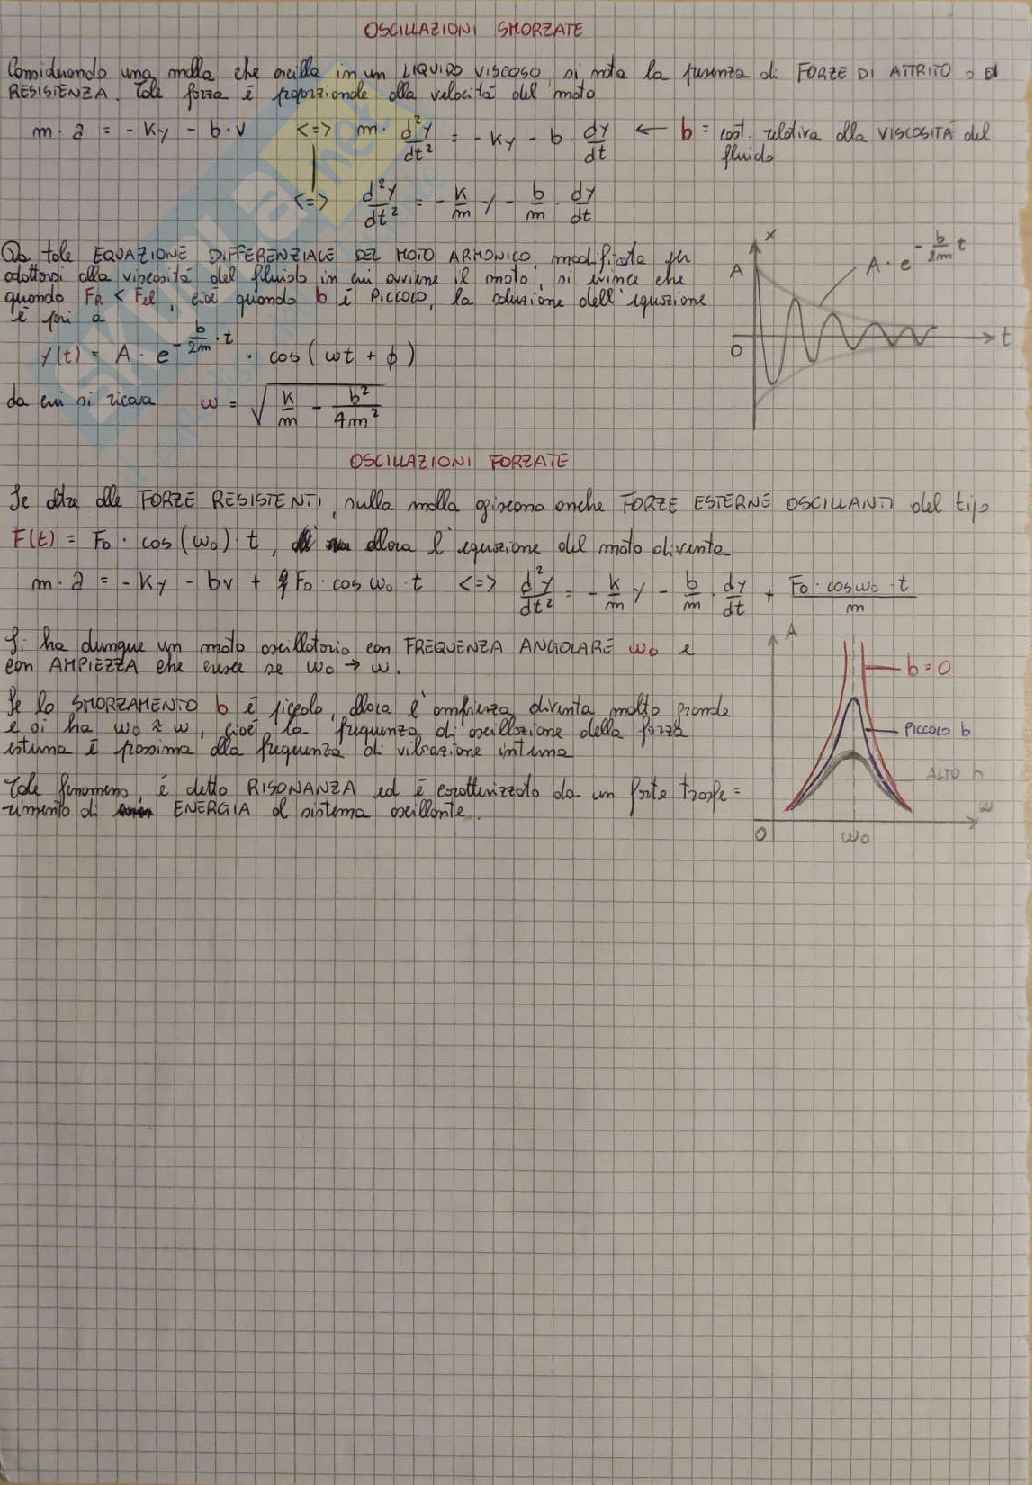 OSCILLAZIONI SMORZATE
Considerando una molla che oscilla in un LIQUIDO VISCOSO, si nota la presenza di FORZE DI ATTRITO o DI
RESISTENZA. Tale forza è proporzionale alla velocità del moto
m · a = - ky - b · v <=> m · d²y/dt² = - ky - b dy/dt ← b = cost. relativa alla VISCOSITÀ del
fluido
<=> d²y/dt² = - k/m y - b/m · dy/dt
Da tale EQUAZIONE DIFFERENZIALE DEL MOTO ARMONICO, modificata per
adattarsi alla viscosità del fluido in cui avviene il moto, si evince che
quando FR < Fel, cioè quando b è PICCOLO, la soluzione dell'equazione
è pari a
y(t) = A · e^(- b/2m · t) · cos(ωt + ϕ)
da cui si ricava ω = √(k/m - b²/4m²)
x
A
A · e^(- b/2m t)
O
t
OSCILLAZIONI FORZATE
Se oltre alle FORZE RESISTENTI, sulla molla agiscono anche FORZE ESTERNE OSCILLANTI del tipo
F(t) = F₀ · cos(ω₀) · t, allora l'equazione del moto diventa
m · a = - ky - bv + F₀ · cos ω₀ · t <=> d²y/dt² = - k/m y - b/m · dy/dt + F₀ · cos ω₀ · t/m
Si ha dunque un moto oscillatorio con FREQUENZA ANGOLARE ω₀ e
con AMPIEZZA che cresce se ω₀ → ω.
Se lo SMORZAMENTO b è piccolo, allora l'ampiezza diventa molto grande
e si ha ω₀ ≈ ω, cioè la frequenza di oscillazione della forza
esterna è prossima alla frequenza di vibrazione interna
Tale fenomeno è detto RISONANZA ed è caratterizzato da un forte trasfe=
rimento di ENERGIA al sistema oscillante.
A
b = 0
PICCOLO b
ALTO b
ω
O
ω₀